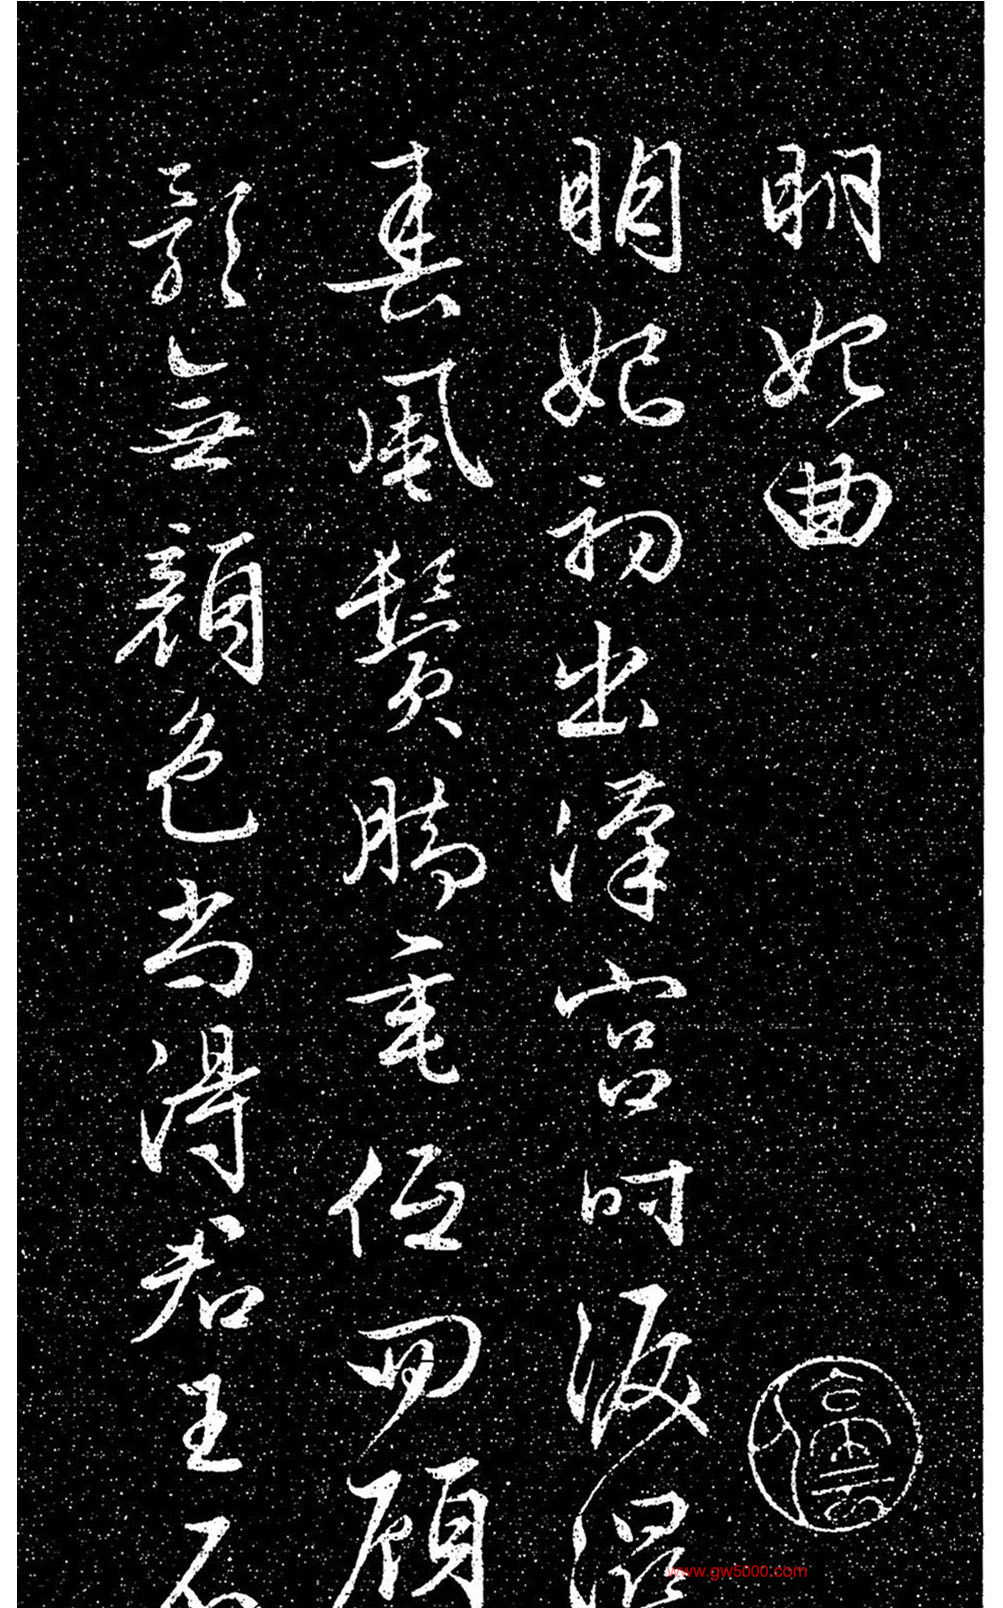 明妃曲
明妃初出漢宮時淚濕
春風鬢腳垂低回顧
影無顏色尚得君王不
www.gw5000.com